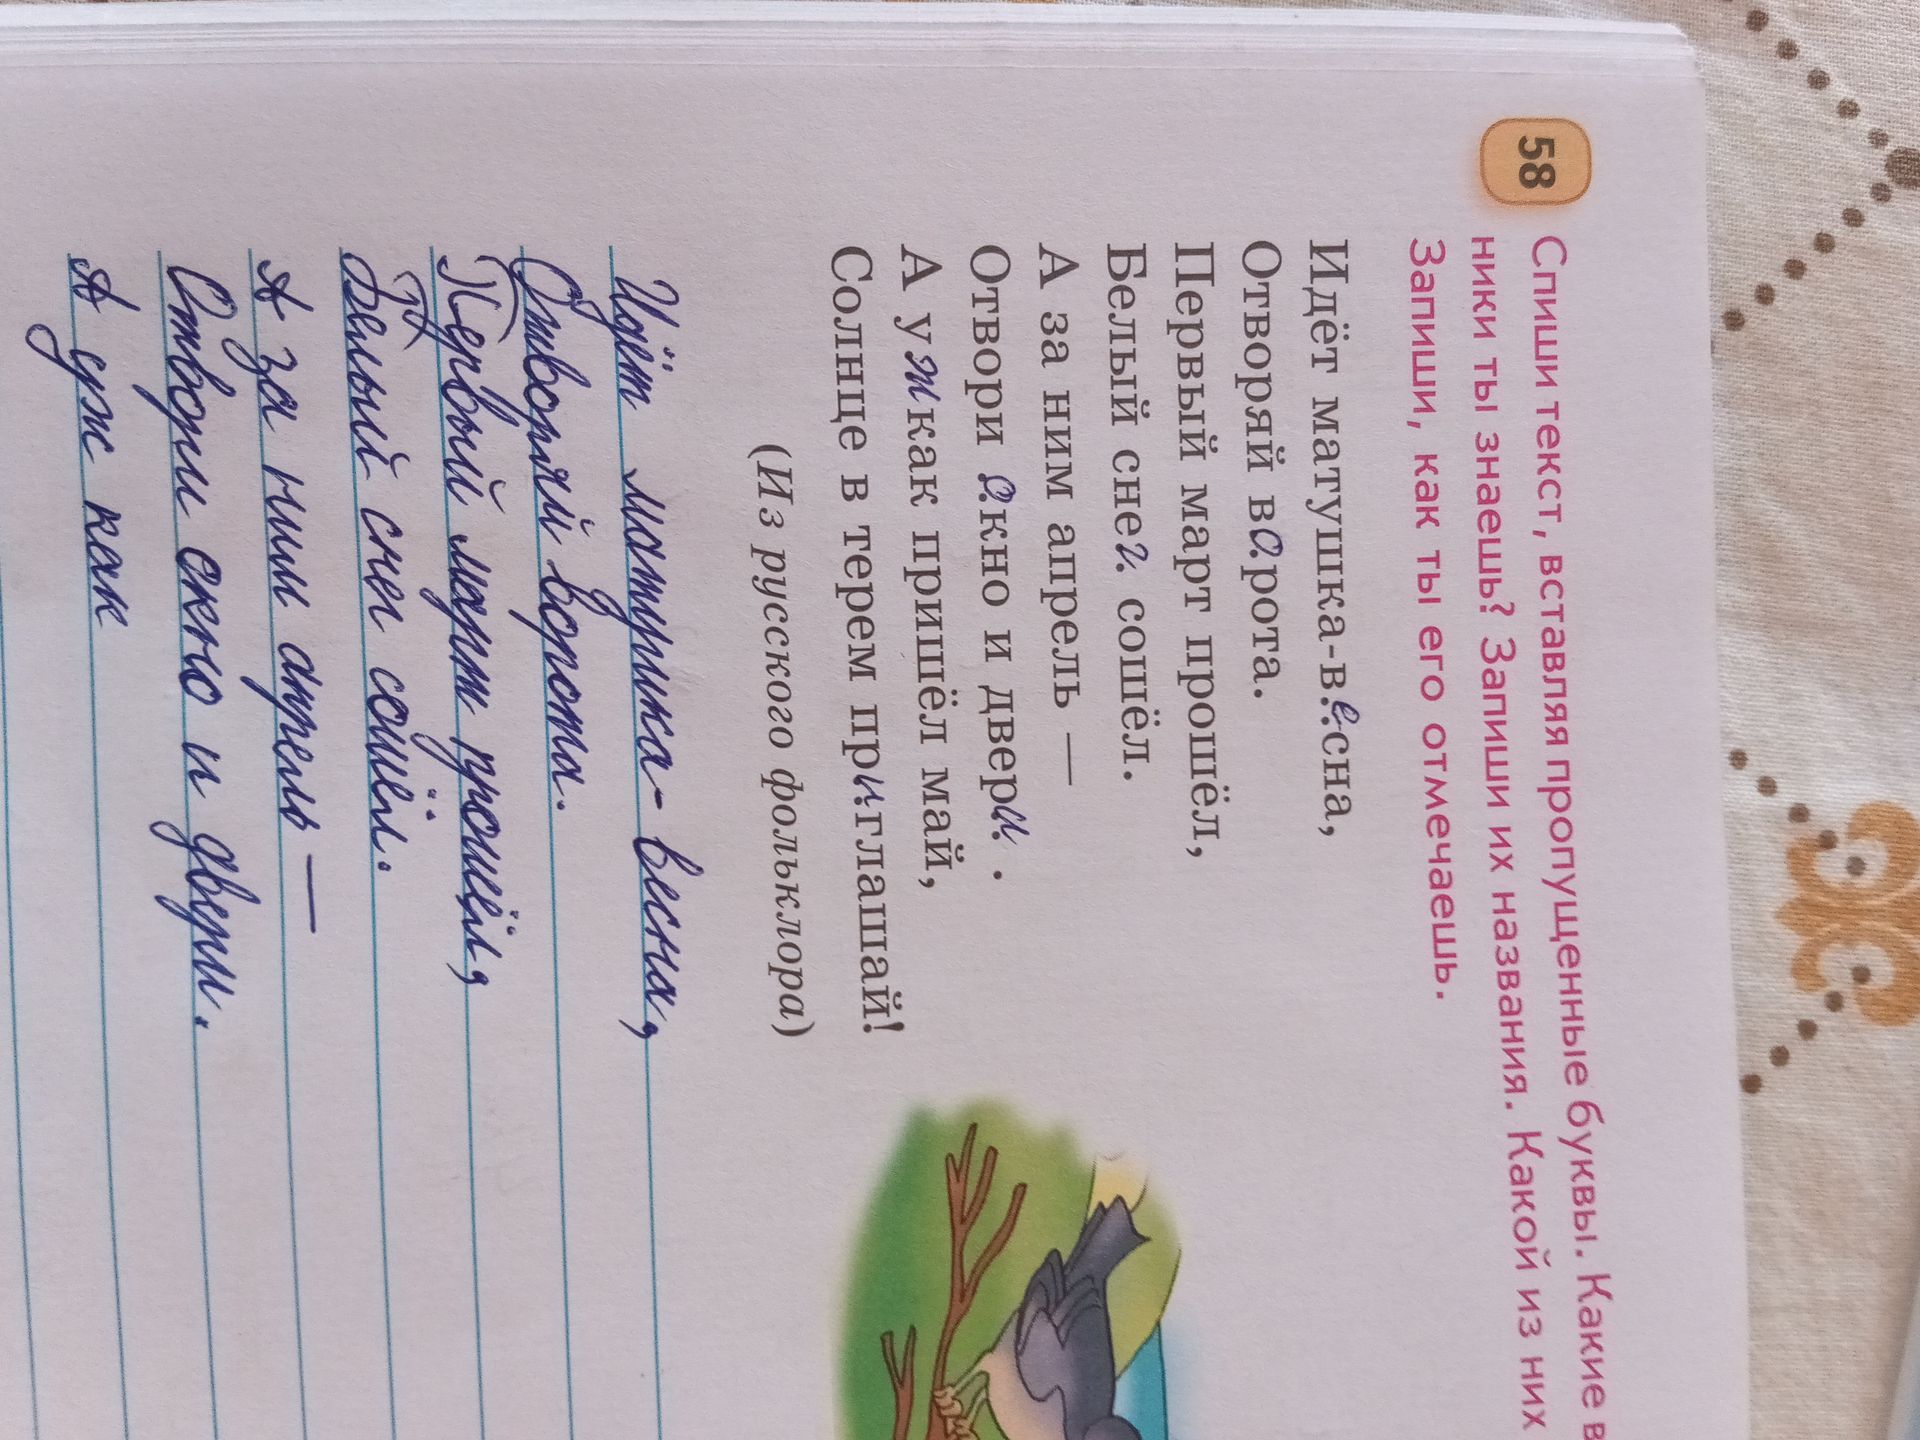 58
Спиши текст, вставляя пропущенные буквы. Какие в
ники ты знаешь? Запиши их названия. Какой из них
Запиши, как ты его отмечаешь.
Идёт матушка-весна,
Отворяй ворота.
Первый март прошёл,
Белый снег сошёл.
А за ним апрель —
Отвори окно и двери.
А уж как пришёл май,
Солнце в терем приглашай!
(Из русского фольклора)
Идёт матушка-весна,
Отворяй ворота.
Первый март прошёл,
Белый снег сошёл.
А за ним апрель —
Отвори окно и двери.
А уж как